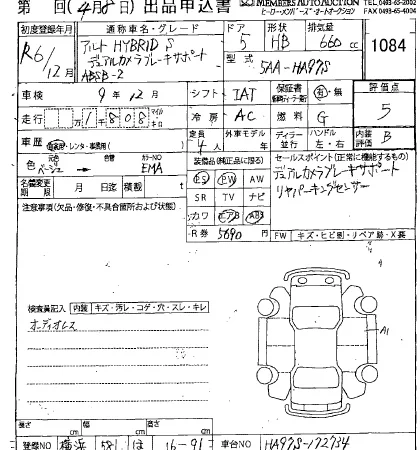 第 回(4月8日)出品申込書
MEMBERS AUTO AUCTION
ヒーローメンバーズオートオークション
TEL 0493-65-2002
FAX 0493-65-4004
初度登録年月 通称車名・グレード ドア 形状 排気量
R6/12月 アルト HYBRID S 5 HB 660 cc 1084
デュアルカメラブレーキサポート
ABSB-2
型式 5AA-HA97S
車検 9年12月 シフト IAT 保証書 有・無 評価点
走行 1808 冷房 AC 燃料 G 5
車歴 自家用・レンタ・事業用 定員 4人 外車モデル 年 ディーラー 並行 ハンドル 左・右 内装評価 B
色 元色 ベージュ 色替 カラーNO EMA
装備品(純正品に限る)
PS PW AW
SR TV ナビ
カワ エアB ABS
R券 5690
セールスポイント(正常に機能するもの)
デュアルカメラブレーキサポート
リヤパーキングセンサー
名義変更期限 月 日迄 積載 t
注意事項(欠品・修復・不具合箇所および状態)
FW キズ・ヒビ割・リペア跡・X要
検査員記入 内装 キズ・汚レ・コゲ・穴・スレ・キレ
オーディオレス
A1
長さ cm 幅 cm 高さ cm
登録NO 横浜 581 ほ 16-91 車台NO HA97S-172734